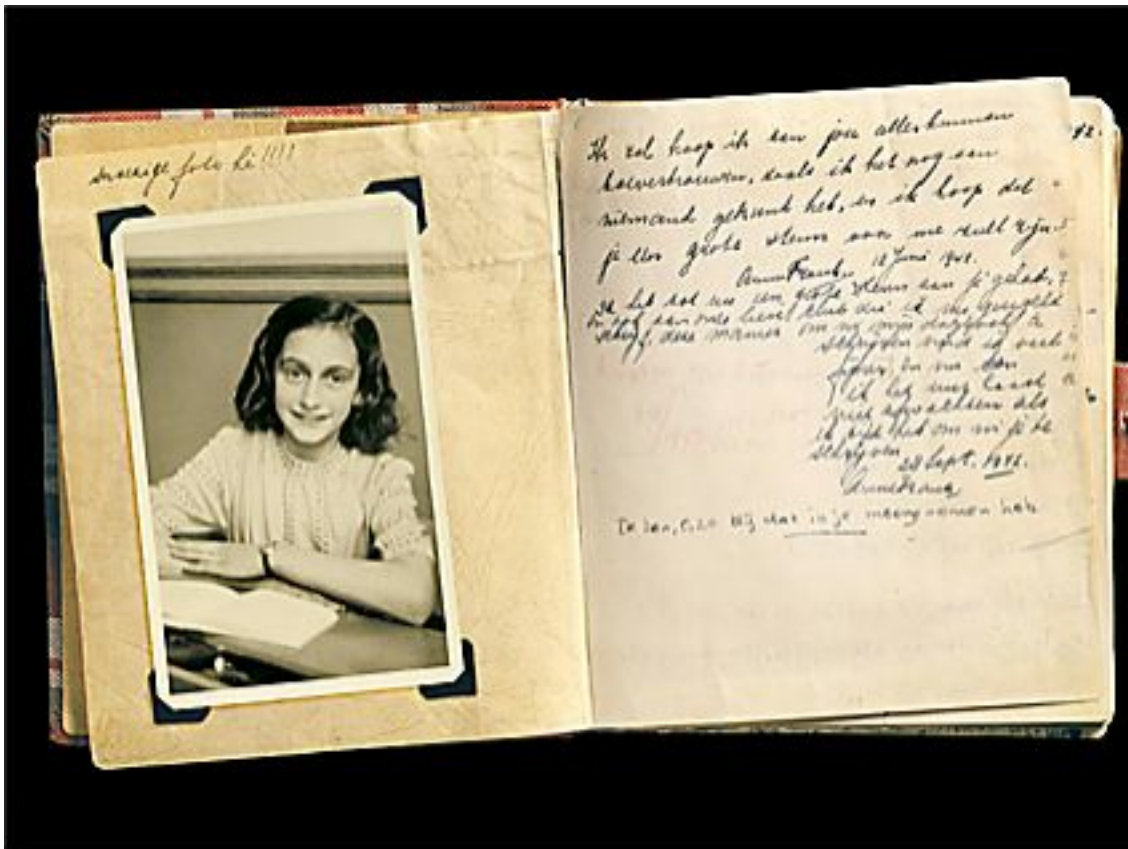 foto hè!!!!
Ik zal hoop ik aan jou alles kunnen
toevertrouwen, zoals ik het nog aan
niemand gekund heb, en ik hoop dat
je een grote steun voor me zult zijn.
Anne Frank. 12 Juni 1942.
Ik heb tot nu een steun aan je gehad,
ook aan onze lieve club die ik nu geregeld
schrijf, deze manier om in mijn dagboek te
schrijven vind ik veel
en nu kan
ik het uur haast
niet afwachten als
ik tijd heb om in je te
schrijven
28 Sept. 1942.
Anne Frank
Ik ben, o, zo blij dat ik je meegenomen heb
42.